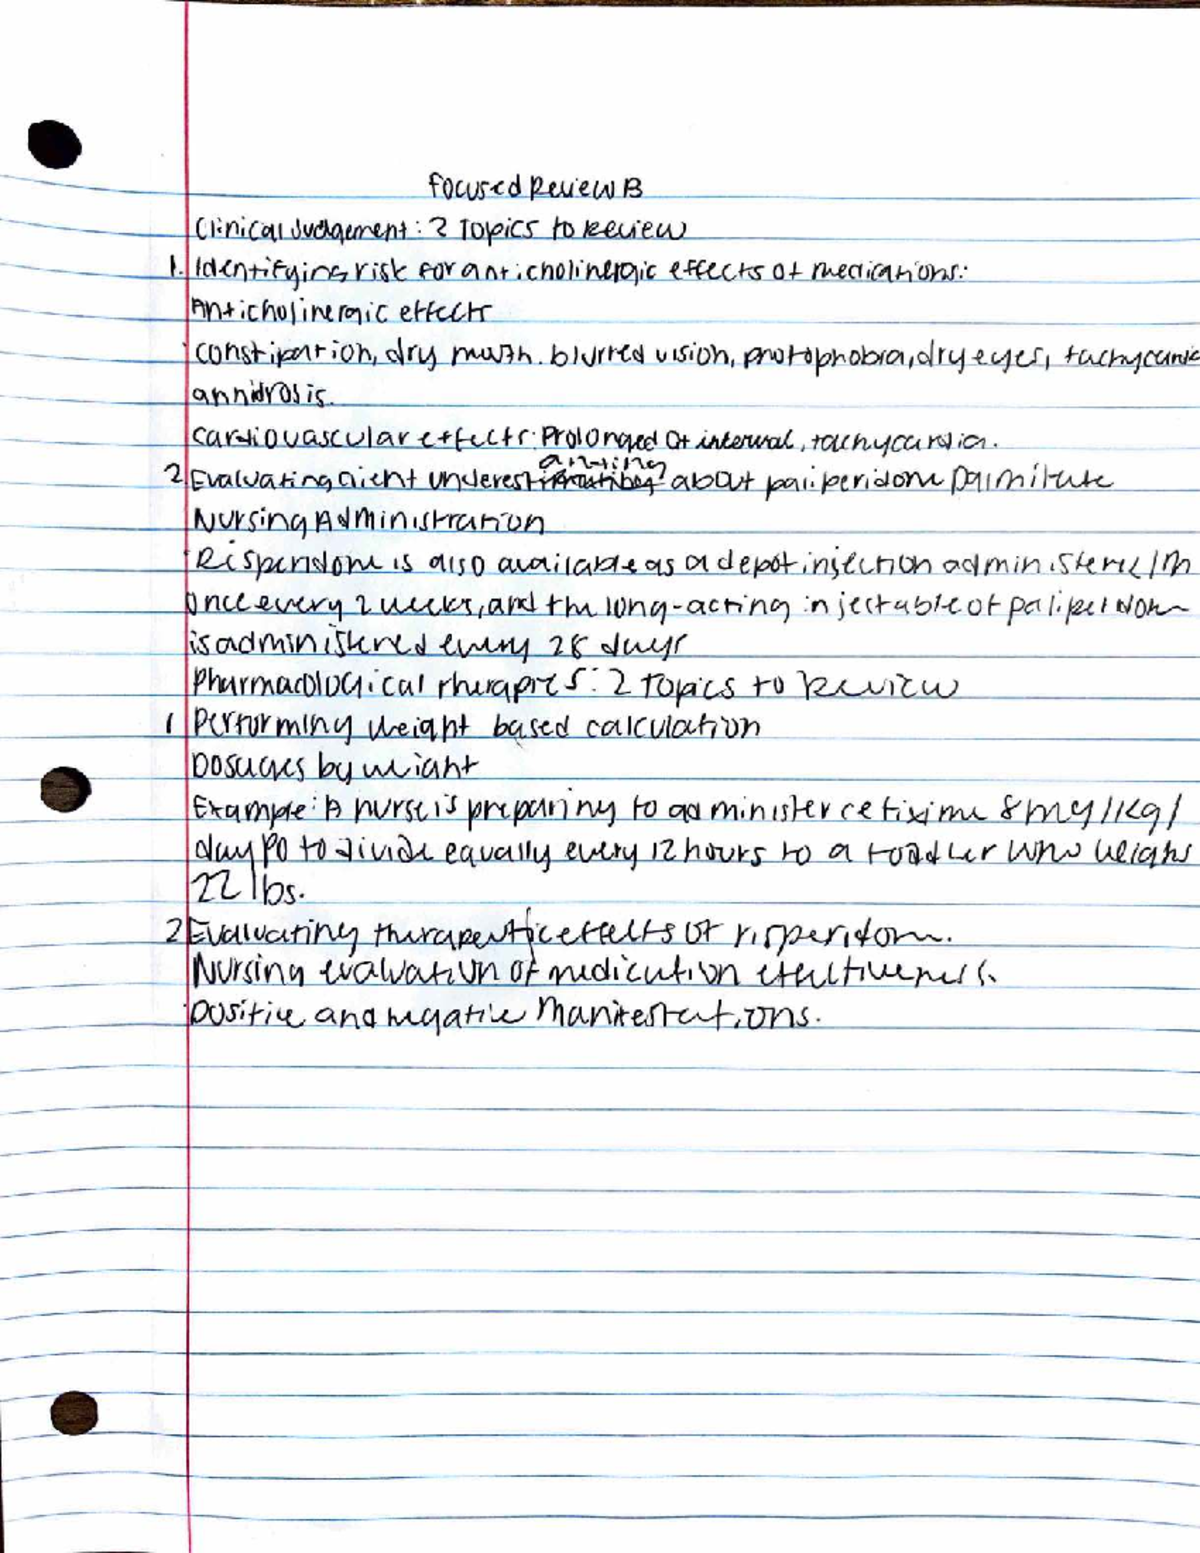 Focused Review B
Clinical Judgement: 2 Topics to Review
1. Identifying risk for anticholinergic effects of medications:
Anticholinergic effects
constipation, dry mouth. blurred vision, photophobia, dry eyes,
annidrosis.
Cardiovascular effects: Prolonged Qt interval, tachycardia.
2 Evaluating client underestanting about paliperidone palmitate
Nursing Administration
Risperidone is also available as a depot injection administered IM
once every 2 weeks, and the long-acting injectable of paliperidone
is administered every 28 days
Pharmacological therapies: 2 Topics to Review
1 Performing weight based calculation
Dosages by weight
Example: A nurse is preparing to administer cefixime 8mg/kg/
day PO to divide equally every 12 hours to a toddler who weighs
22 lbs.
2 Evaluating therapeutic effects of risperidone.
Nursing evaluation of medication effectiveness.
positive and negative Manifestations.